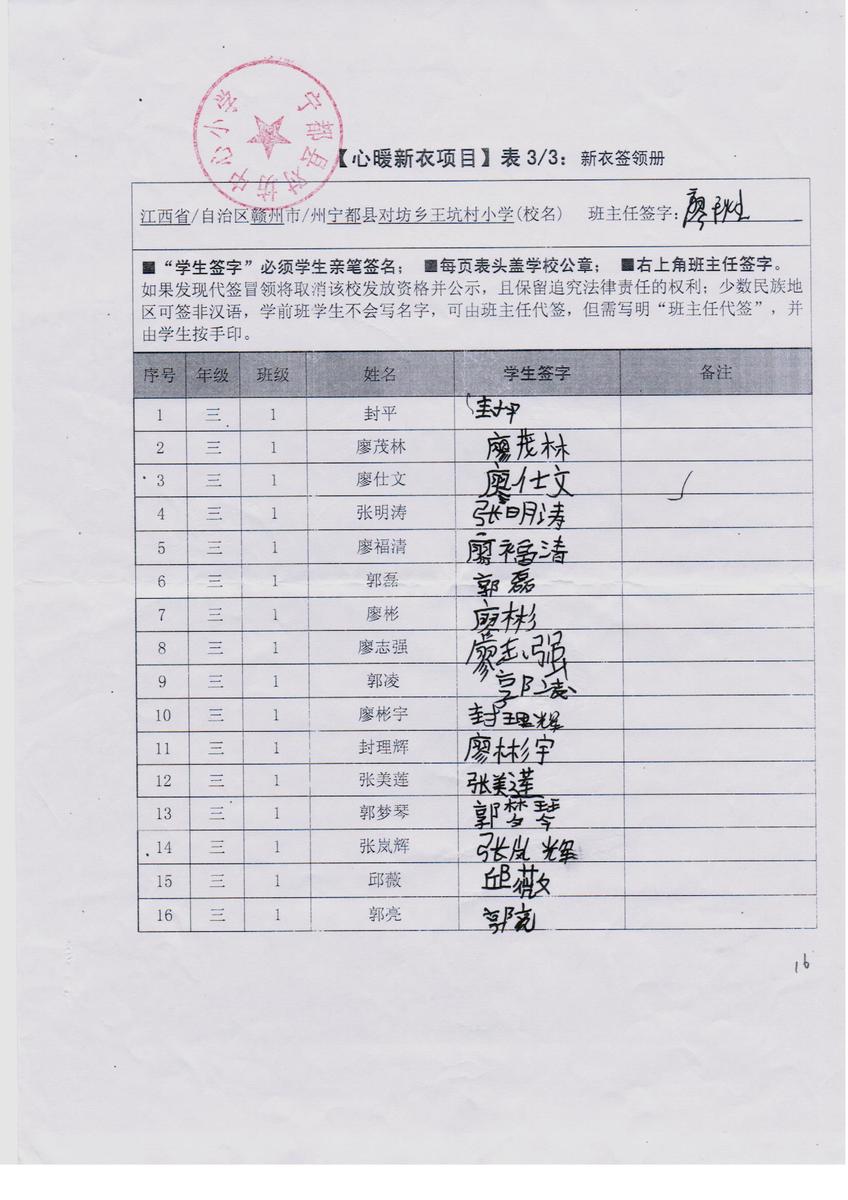 宁都县对坊中心小学
【心暖新衣项目】表3/3：新衣签领册
江西省/自治区赣州市/州宁都县对坊乡王坑村小学(校名) 班主任签字：廖
■“学生签字”必须学生亲笔签名； ■每页表头盖学校公章； ■右上角班主任签字。
如果发现代签冒领将取消该校发放资格并公示，且保留追究法律责任的权利；少数民族地
区可签非汉语，学前班学生不会写名字，可由班主任代签，但需写明“班主任代签”，并
由学生按手印。
序号 年级 班级 姓名 学生签字 备注
1 三 1 封平 封平
2 三 1 廖茂林 廖茂林
3 三 1 廖仕文 廖仕文
4 三 1 张明涛 张明涛
5 三 1 廖福清 廖福清
6 三 1 郭磊 郭磊
7 三 1 廖彬 廖彬
8 三 1 廖志强 廖志强
9 三 1 郭凌 郭凌
10 三 1 廖彬宇 封理辉
11 三 1 封理辉 廖彬宇
12 三 1 张美莲 张美莲
13 三 1 郭梦琴 郭梦琴
14 三 1 张岚辉 张岚辉
15 三 1 邱薇 邱薇
16 三 1 郭亮 郭亮
16